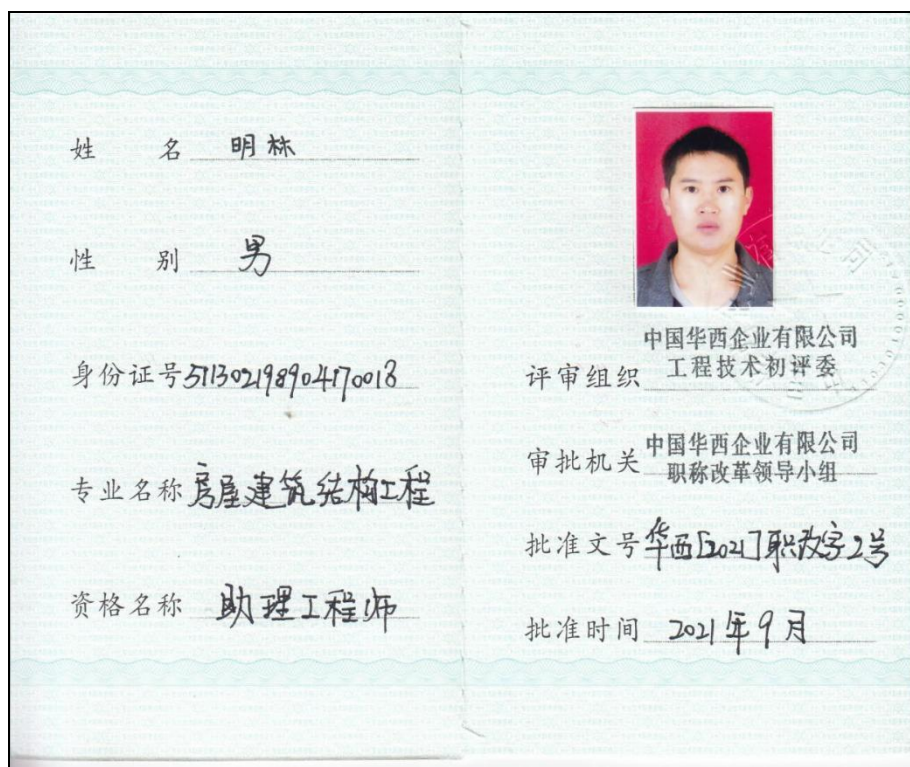 姓 名 明林
性 别 男
身份证号 511302198904170018
专业名称 房屋建筑结构工程
资格名称 助理工程师
评审组织 中国华西企业有限公司
工程技术初评委
审批机关 中国华西企业有限公司
职称改革领导小组
批准文号 华西[2021]职改字2号
批准时间 2021年9月